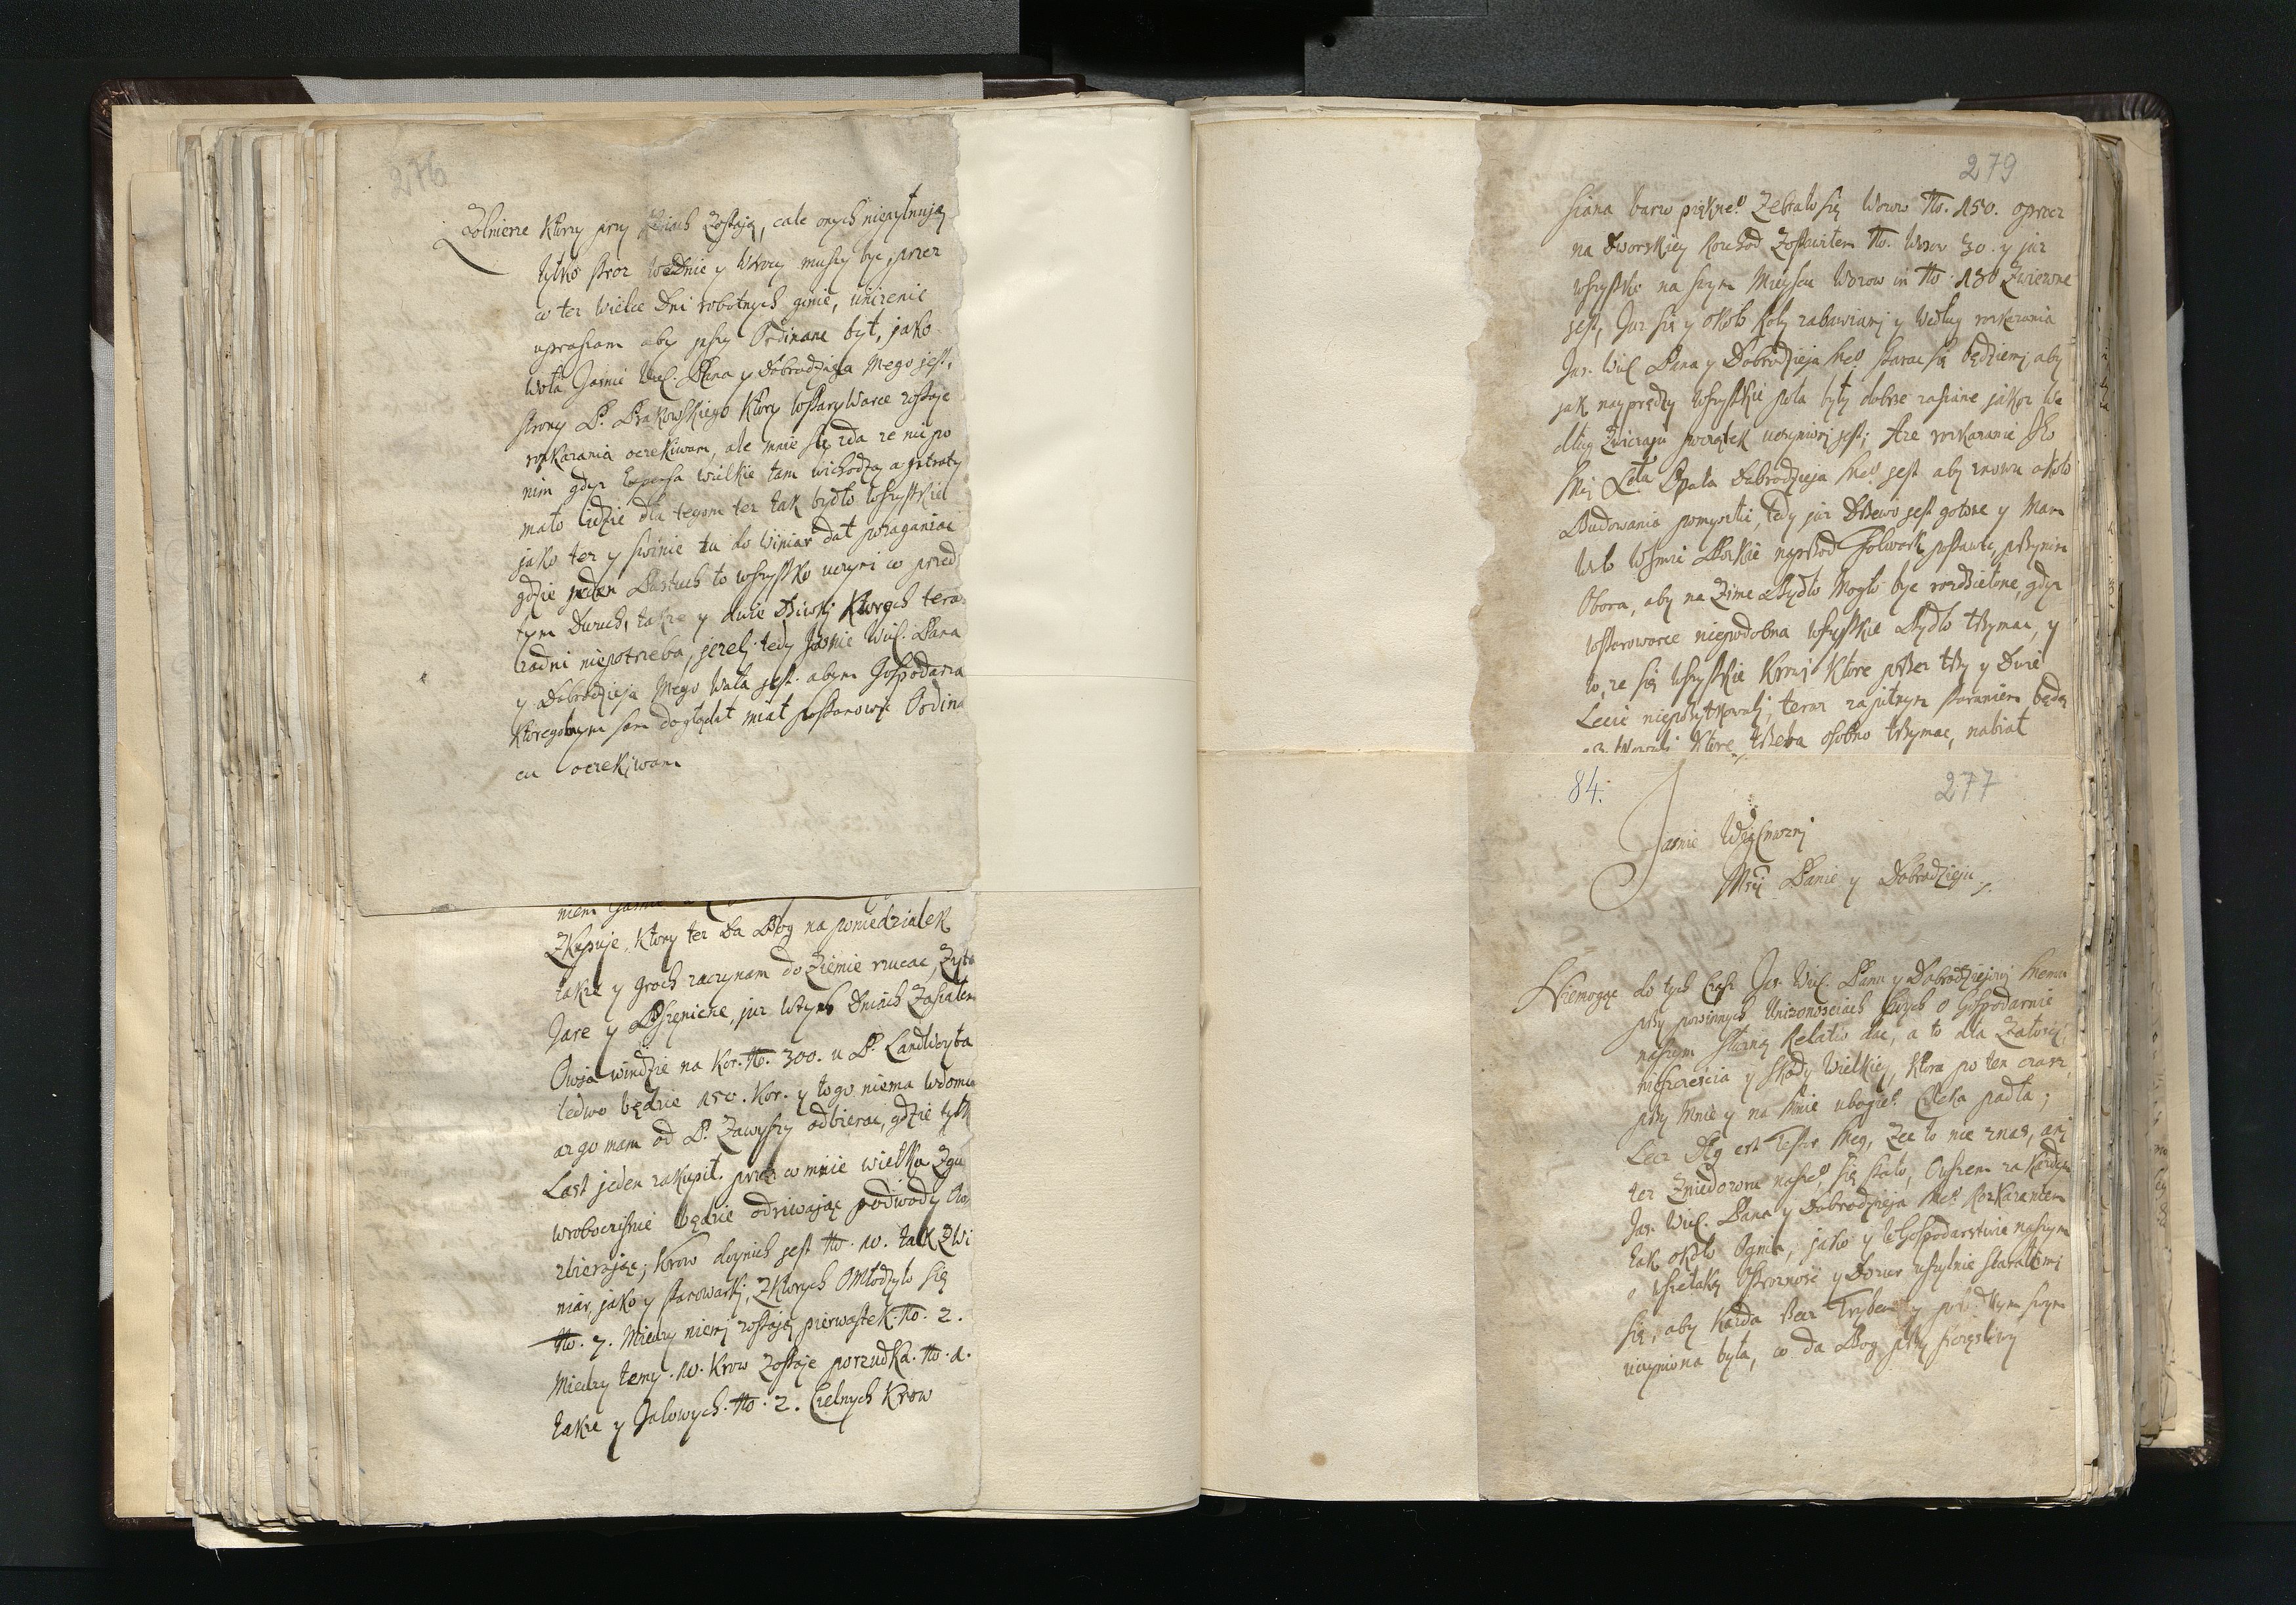 276
Zolnierze Ktory przy Koniach Zostaią, cale onych niepylnuią
tylko stroz Wednie y Wnocy muszy byc, przez
co tez wiele Dni robotnych ginie, unizenie
upraszam aby jeszy Ordinans byt, jako
Wola Jasnie Wiel. Pana y Dobrodzieja Mego jest,
strony P. Brakowskiego Ktory wstarywarce zostaje
roskazania oczekiwam, ale mnie się zda ze nie po
nim gdyz Expensa wielkie tam wichodzą a intraty
malo idzie dla tegom tez tak bydlo wszystkie
jako tez y swinie tu do Winiar dal przeganiac
gdzie jeden Pastuch to wszystko uczyni co przed
tym Dwuch, takze y dwie Dziwki Ktorych teraz
zadni niepotrzeba, jezeli tedy Jasnie Wiel. Pana
y Dobrodzieja Mego Wola jest abym Gospodarza
Ktoregobym sam doglądal mial postanowic Ordina
cu oczekiwam
niem
Zkupuje, Ktory tez Da Bog na poniedzialek
takze y Groch zaczynam do Ziemie rzucac, Zyta
Jare y Pszenicze, juz wtych Dniach Zasialem
Owsa windzie na Kor. No. 300. u P. Landwoyta
ledwo będzie 150. Kor. y togo niema wdomu
azgo mam od P. Zawyszy odbierac, gdzie tylk
Last jeden zakupil. przez co mnie wielka Zgu
wroboczisnie będzie odziwając podwody Ow
zbierając; Krow doynich jest No. 10. tak ZWi
niar, jako y starowarki, Zktorych Omlodzylo się
No. 7. Miedzy niemi zostają pierwastek No. 2.
Miedzy temy 10. Krow Zostaje porzudka No. 1.
takze y Jalowych No. 2. Cielnych Krow
279
siana barzo piękne Zebralo się Wozow No. 150. oprocz
na Dworskiey Rozchod Zostawilem No. Wozow 30. y juz
wszystko na swym Mieyscu Wozow in No. 180 Zwiezione
jest, Juz się y okolo Roly zabawiamy y Wedlug roskazania
Jas. Wiel. Pana y Dobrodzieja Me starac się będziemy aby
jak nayprędzy wszystkie pola byly dobrze zasiane jakoz We
dlug Zwiczaju początek uczyniony jest; Aze roskazanie
Pana Dobrodzieja Me jest aby znowu okolo
Budowania pomyszlic, tedy juz Drzewo jest gotowe y Mam
naprzod Folwark postawic, przynim
Obora, aby na Zime Bydlo Moglo byc rozdzielone, gdyz
wstarowarce niepodobna wszystkie Bydlo trzymac, y
to, ze się wszystkie Krowy Ktore przez trzy y Dwie
Lecie niepożytkowaly, teraz zapilnym staraniem będą
Ktore trzeba osobno trzymac, nabial
84.
277
Jasnie Wielmozny
Mnie Panie y Dobrodzieju
Niemogąc do tych Czas Jas. Wiel. Panu y Dobrodziejowi Memu
przy powinnych Unizonosciach swych o Gospodarnie
naszym sluszną Relatio dac, a to dla Zalosci,
nieszczescia y skody Wielkiey, Ktora po ten czasz
przy Mnie y na Mnie ubogie Cleka padla;
Lecz Bog est Testis Meg, Zee to nie znas, ani
tez Zniedozoru nasze się stalo, Owszem za Kazdym
Jas. Wiel. Pana y Dobrodzieja Me Rozkazaniem
tak okolo Ognia, jako y w Gospodarstwie naszym
o wszelaką Ostroznosc y Dozur uszylnie staralismi
się, aby Kazda Rzecz Trybem y swym
uczyniona byla, co da Bog przy szczęsliwy